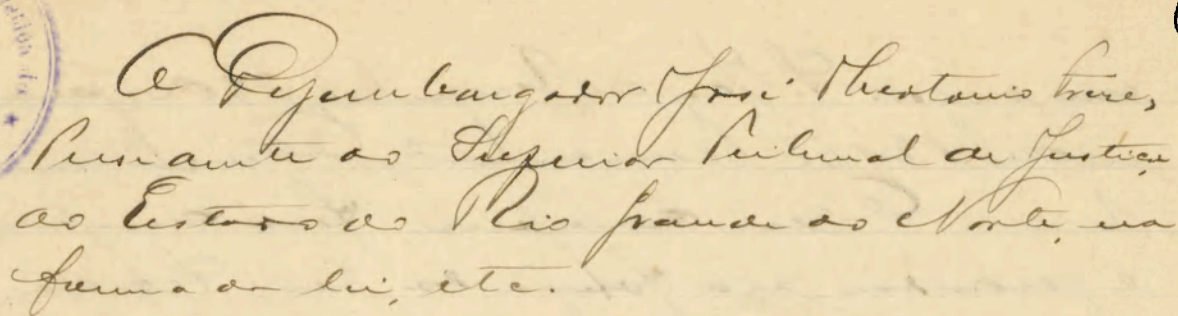 O Desembargador José Theotonio Freire,
Presidente do Superior Tribunal de Justiça
do Estado do Rio Grande do Norte, na
forma da lei, etc.